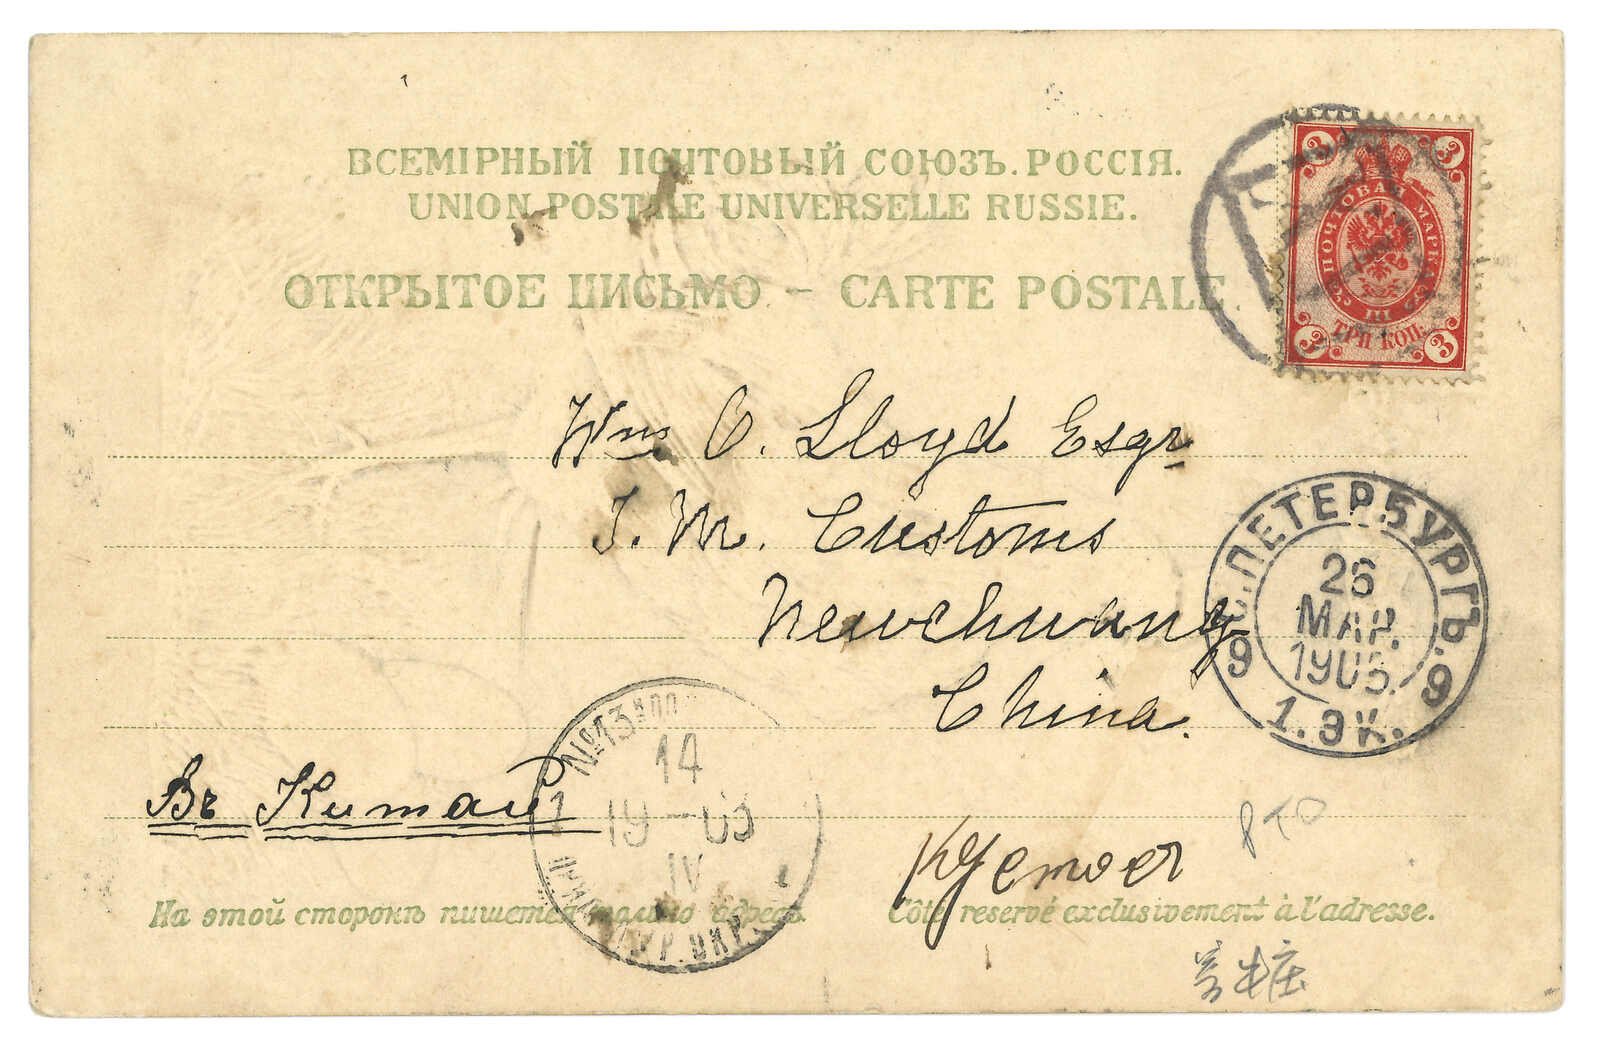 ВСЕМІРНЫЙ ПОЧТОВЫЙ СОЮЗЪ. РОССІЯ.
UNION POSTALE UNIVERSELLE RUSSIE.
ОТКРЫТОЕ ПИСЬМО – CARTE POSTALE.
3 3
ПОЧТОВАЯ МАРКА
ТРИ КОП.
3 3
Wm O. Lloyd Esqr
I. M. Customs
Newchwang
China.
С.ПЕТЕРБУРГЪ.
26
МАР.
1905.
9 9
1. ЭК.
Въ Китай
№13
14
19-05
IV
PTO
На этой сторонѣ пишется только адресъ.
Côté reservé exclusivement à l'adresse.
寄牛莊